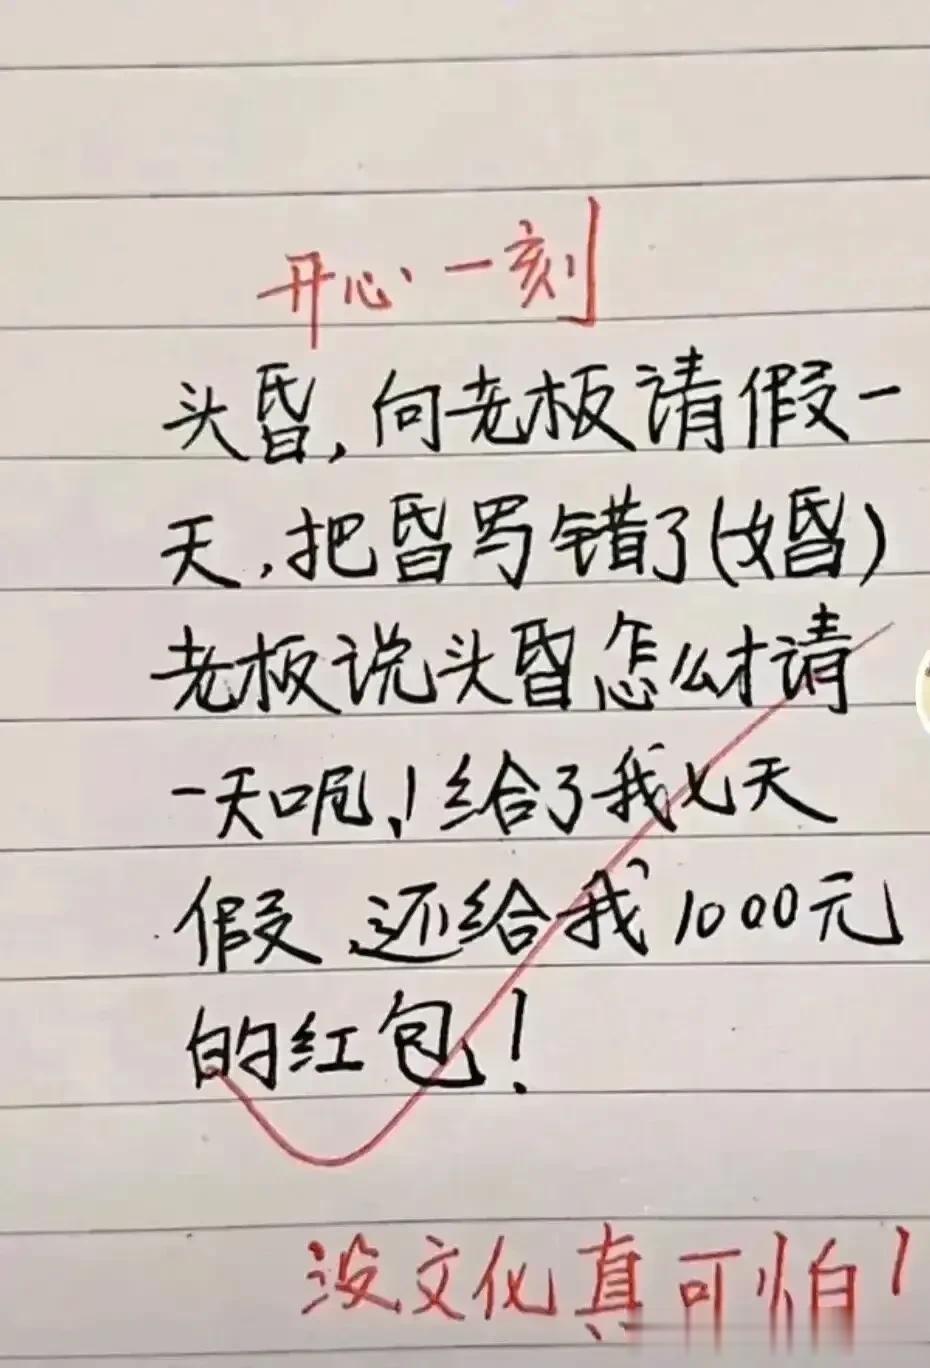 开心一刻
头昏,向老板请假一
天,把昏写错了(婚)
老板说头昏怎么才请
一天呢!给了我七天
假,还给我1000元
的红包!
没文化真可怕!